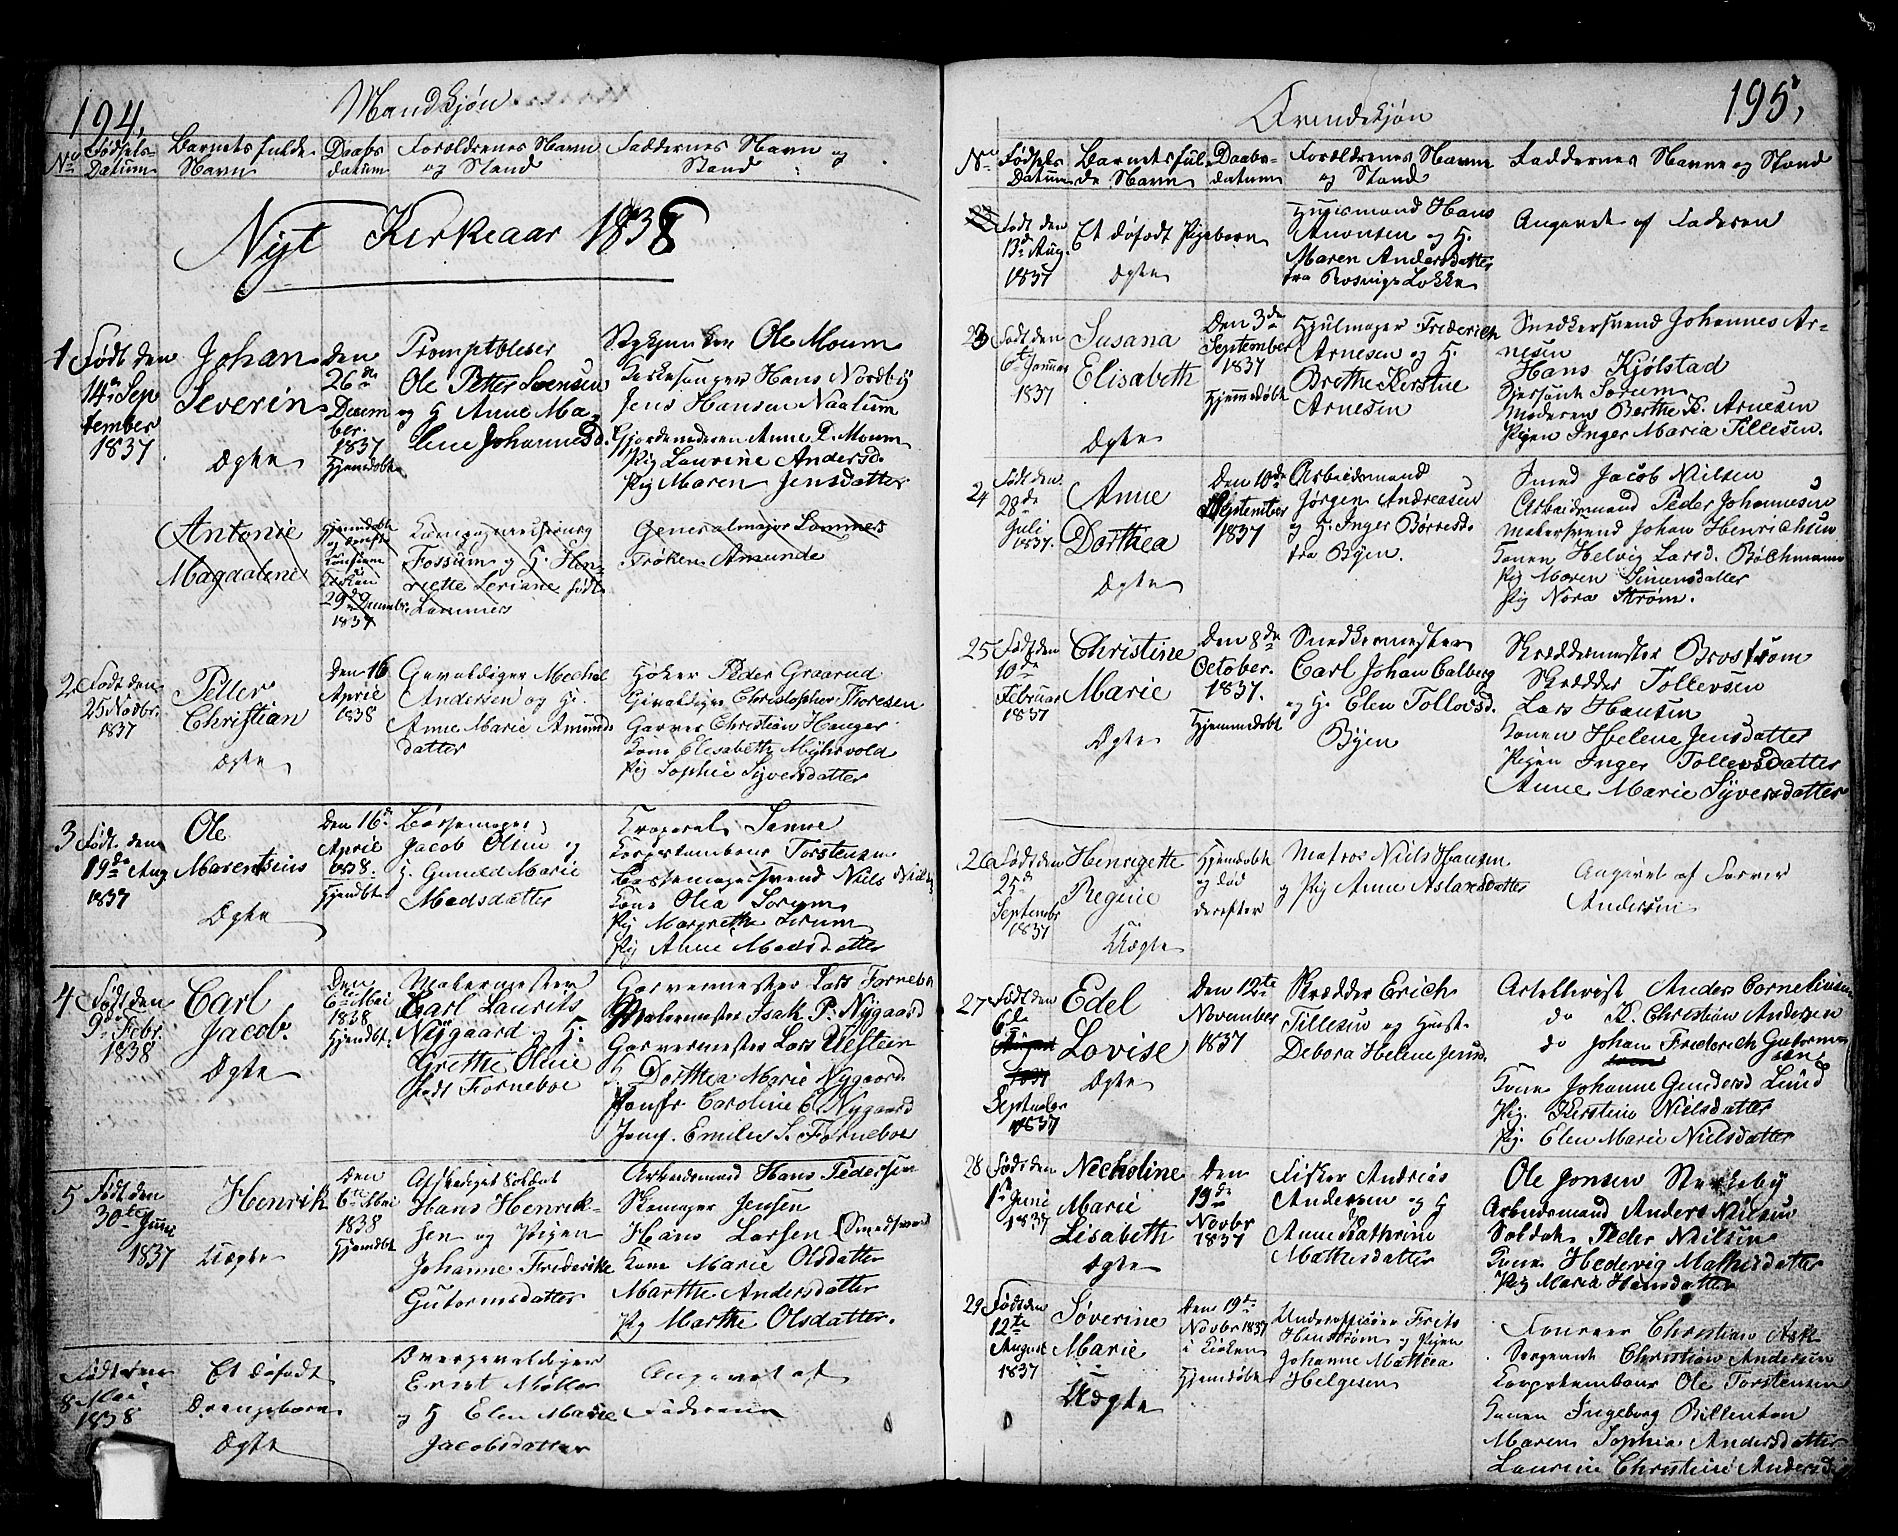 194,
Mandkjøn
No
Fødsels-
Datum
Barnets fulde
Navn
Daabs
datum
Forældrenes Navn
og Stand
Faddernes Navn og
Stand
Nyt Kirkeaar 1838
1
Født den
14de Sep
tember
1837
Johan
Severin
Ægte
Den
26de
Decem
ber.
1837
Hjemdøbt
Ole Petter Svensen
og H. Anne Ma-
lene Johannesd.
Ole Moum
Kirkesanger Hans Nordby
Jens Hansen Naatum
Gjordemoderen Anne P. Moum
Pig Laurine Andersd.
Pig Maren Jensdatter
Antonie
Magdalene
Hjemdøbt
29de December
1837
Fossum og H. Hen-
riette Leriane født
Lammers
Generalmajor Lammers
Frøken Amunde
2
Født den
25 Novbr.
1837
Petter
Christian
Ægte
Den 16
April
1838
Gevaldiger Mechel
Andersen og H.
Anne Marie Amunds
datter
Høker Peder Graarud
Gevaldiger Christopher Thoresen
Garver Christian Hanger
Kone Elisabeth Myhrvold
Pig Sophie Syversdatter
3
Født den
19de Aug
1837
Ole
Marentius
Ægte
Den 16de
April
1838.
Hjemdbt
Bøssemager
Jacob Olsen og
H. Gunild Marie
Madsdatter
Korporal Sanne
Korpstambour Torstensen
Bøssemagersvend Niels
Kone Olea Sorum
Pig Margrethe Sorum
Pig Anne Madsdatter
4
Født den
9de Febr.
1838
Carl
Jacob.
Ægte
Den
6te Mai
1838
Hjemdbt.
Malermester
Carl Laurits
Nygaard og H.
Grethe Oline
født Forneboe
Garvermester Lars Forneboe
Malermester Isak P. Nygaard
Garvermester Lars Ulstein
H. Dorthea Marie Nygaard
Jomfr Caroline C. Nygaard
Jomf. Emilie S. Forneboe
5
Født den
30te Juni
1837
Henrik
Uægte
Den
6te Mai
1838
Hjemdbt
Afskediget Soldat
Hans Henrik-
sen og Pigen
Johanne Frederikke
Gutormsdatter
Arbeidsmand Hans Pedersen
Skomager Jensen
Hans Larsen (Smedsvend)
Kone Marie Olsdatter
Marthe Andersdatter
Pig Marthe Olsdatter.
Født den
8 Mai
1838
Et dødfødt
Drengebarn
Ægte
Overgevaldiger
Ernst Møller
og H Elen Marie
Jacobsdatter
Angivet af
Faderen
195,
Qvindekjøn
No
Fødsels
Datum
Barnets ful-
de Navn
Daabs-
datum
Forældrenes Navne
og Stand
Faddernes Navne og Stand
Født den
13de Aug.
1837
Et dødfødt Pigebarn
Ægte
Huusmand Hans
Arentsen og H.
Maren Andersdatter
fra Rosnigs Løkke
Angivet af Faderen
23
Født den
6te Januar
1837
Susana
Elisabeth
Ægte
Den 3de
September
1837
Hjemmedøbt
Hjulmager Frederich
Arnesen og H.
Brethe Kirstine
Arnesen
Snedkersvend Johannes Ar-
nesen
Hans Kjølstad
Sersjant Sorum
Moderen Berthe K. Arnesen
Pigen Inger Maria Tillesen.
24
Født den
28de
Juli
1837.
Anne
Dorthea
Ægte
Den 10de
September
1837
Arbeidsmand
Jørgen Andreasen
og H. Inger Børresd.
fra Byen.
Smed Jacob Nielsen
Arbeidsmand Peder Johannesen
Malersvend Johan Henrichsen
Konen Helvig Larsd. Bøchmann
Pig Maren Simensdatter
Pig Nora Strøm.
25
Født den
10de
Februar
1837
Christine
Marie
Ægte
Den 8de
October.
1837.
Hjemmedøbt
Snedkermester
Carl Johan Calberg
og H. Elen Tollovsd.
Byen
Skræddermester Brostrøm
Skrædder Tollevsen
Lars Hansen
Konen Helene Jensdatter
Pigen Inger Tollevsdatter
Anne Marie Syversdatter
26
Født den
25de
Septembr
1837
Henrigette
Regine
Uægte
Hjemdøbt
og død
derefter
Matros Niels Hansen
og Pig Anne Aslansdatter
Angivet af Farver
Andersen
27
Født den
6te
August
1837
September
1837
Edel
Lovise
Ægte
Den 12te
November
1837
Skrædder Erich
Tillesen og Hust.
Debora Helene Jensd.
Artellerist Anders Cornelius
do K. Christian Andersen
do Johan Frederich Gutorm-
sen
Kone Johanne Gundersd Lund
Pig. Kirstine Nielsdatter
Pig. Elen Marie Nielsdatter
28
Født den
1te Juni
1837
Necholine
Marie
Lisabeth
Ægte
Den
19de
Novbr
1837
Fisker Andreas
Andersen og H
Anne Kathrine
Mathisdatter
Ole Jonsen Sterkeby
Arbeidsmand Anders Nielsen
Soldat Peder Nielsen
Kone Hedevig Mathisdatter
Pig Maria Hansdatter
29
Født den
12te
August
1837
Søverine
Marie
Uægte
Den 19de
Novbr 1837
i Kirken
Hjemdøbt
Underofficier Frits
Henstrøm og Pigen
Johanne Mathea
Helgesen
Fourer Christian Ask
Sergeant Christian Andersen
Korpstambour Ole Torstensen
Konen Ingeborg Billenton
Maren Sophie Andersdatter
Laurine Christine Andersd